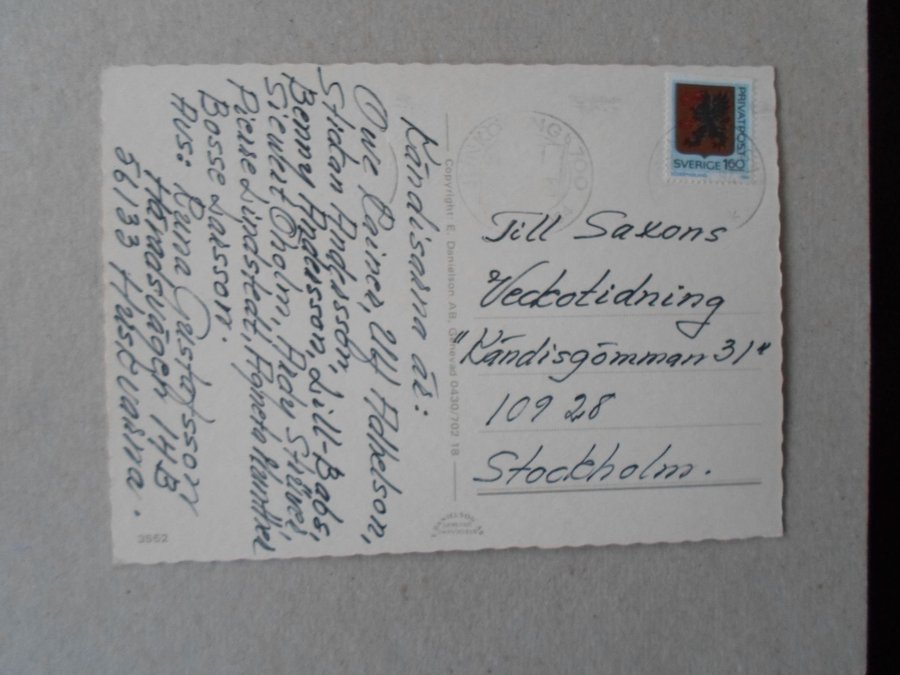 Kändisarna är:
Owe Thörnqvist, Ulf Hakelson,
Staffan Andersson, Lill-Babs,
Benny Andersson,
Siewert Öholm,
Pierre Lindstedt, Agneta
Bosse Larsson.
Avs: Runa Gustafsson
Häradsvägen 14B
56133 Huskvarna.
Copyright: E. Danielson AB, Genevad 0430/702 18
3962
PRIVATPOST
SVERIGE 160
Till Saxons
Veckotidning
"Kändisgömman 31"
109 28
Stockholm.